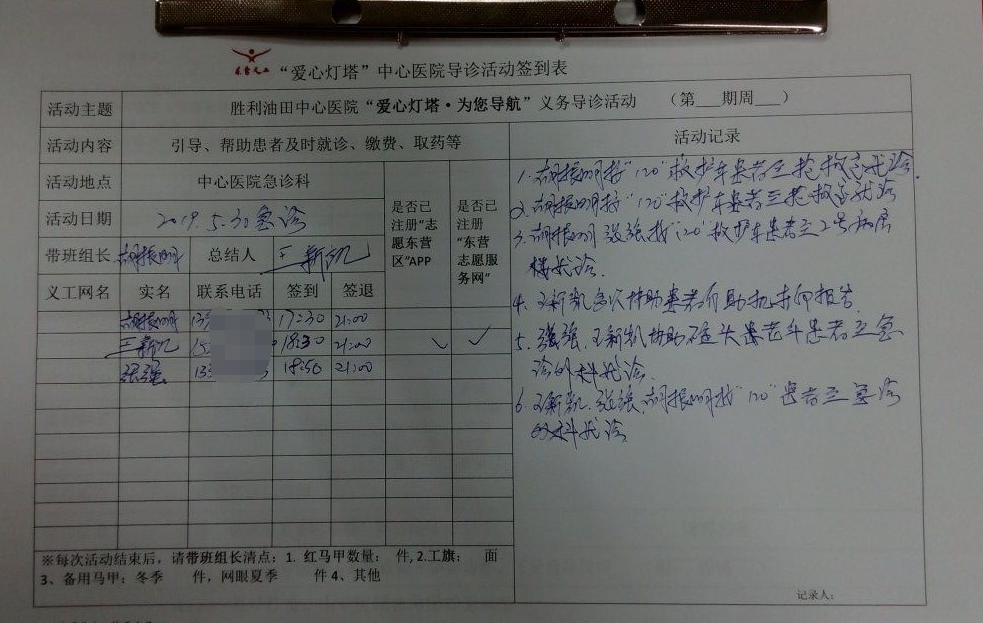 东营义工
“爱心灯塔”中心医院导诊活动签到表
活动主题 胜利油田中心医院“爱心灯塔·为您导航”义务导诊活动 （第___期周___）
活动内容 引导、帮助患者及时就诊、缴费、取药等
活动记录
活动地点 中心医院急诊科
是否已注册“志愿东营区”APP
是否已注册“东营志愿服务网”
活动日期 2019.5.30急诊
带班组长 胡振明 总结人 王新凯
义工网名 实名 联系电话 签到 签退
胡振明 17:30 21:00
王新凯 18:30 21:00 ✓ ✓
张强 18:50 21:00
1.胡振明接“120”救护车患者至抢救室就诊.
2.胡振明接“120”救护车患者至抢救室就诊
3.胡振明 张强接“120”救护车患者至2号病房
楼就诊.
4.王新凯多次协助患者自助机打印报告.
5.张强、王新凯协助 患者 患者至急
诊外科就诊.
6.王新凯.张强.胡振明接“120”患者至急诊
外科就诊
※每次活动结束后，请带班组长清点：1. 红马甲数量： 件, 2.工旗： 面
3、备用马甲：冬季 件，网眼夏季 件 4、其他
记录人：